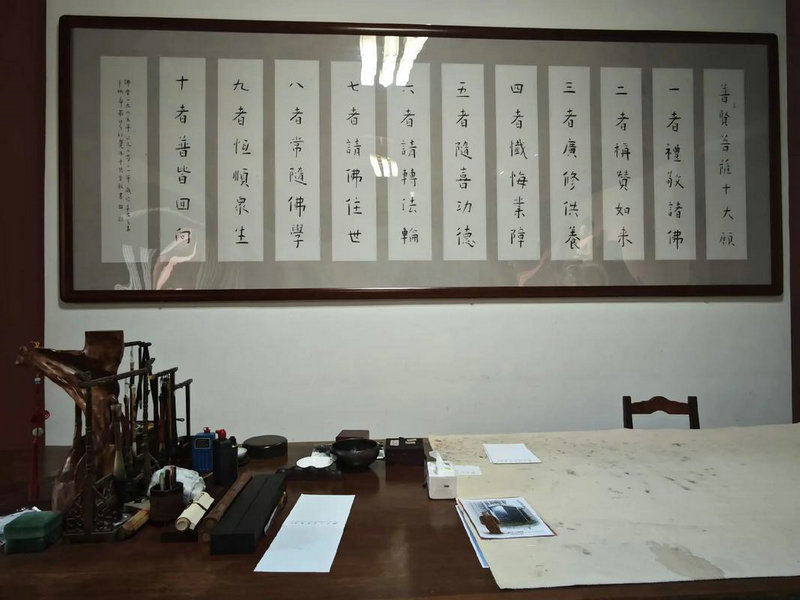 普賢菩薩十大願
一者禮敬諸佛
二者稱贊如来
三者廣修供養
四者懺悔業障
五者隨喜功德
六者請轉法輪
七者請佛住世
八者常隨佛學
九者恆順眾生
十者普皆回向